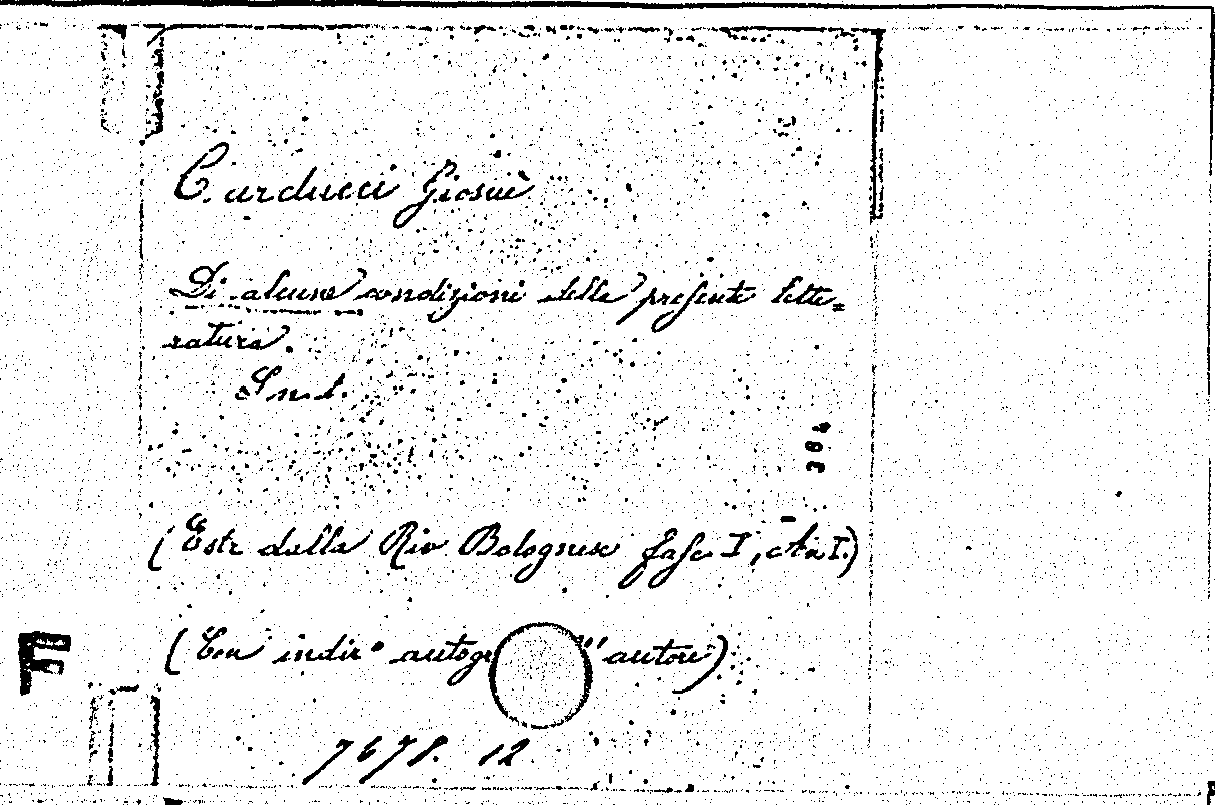 Carducci Giosuè
Di alcune condizioni della presente lette=
ratura.
S. n. t.
304
(Estr dalla Riv Bolognese fasc. I, An I.)
F
(Con indir° autogr ll' autore)
7678. 12